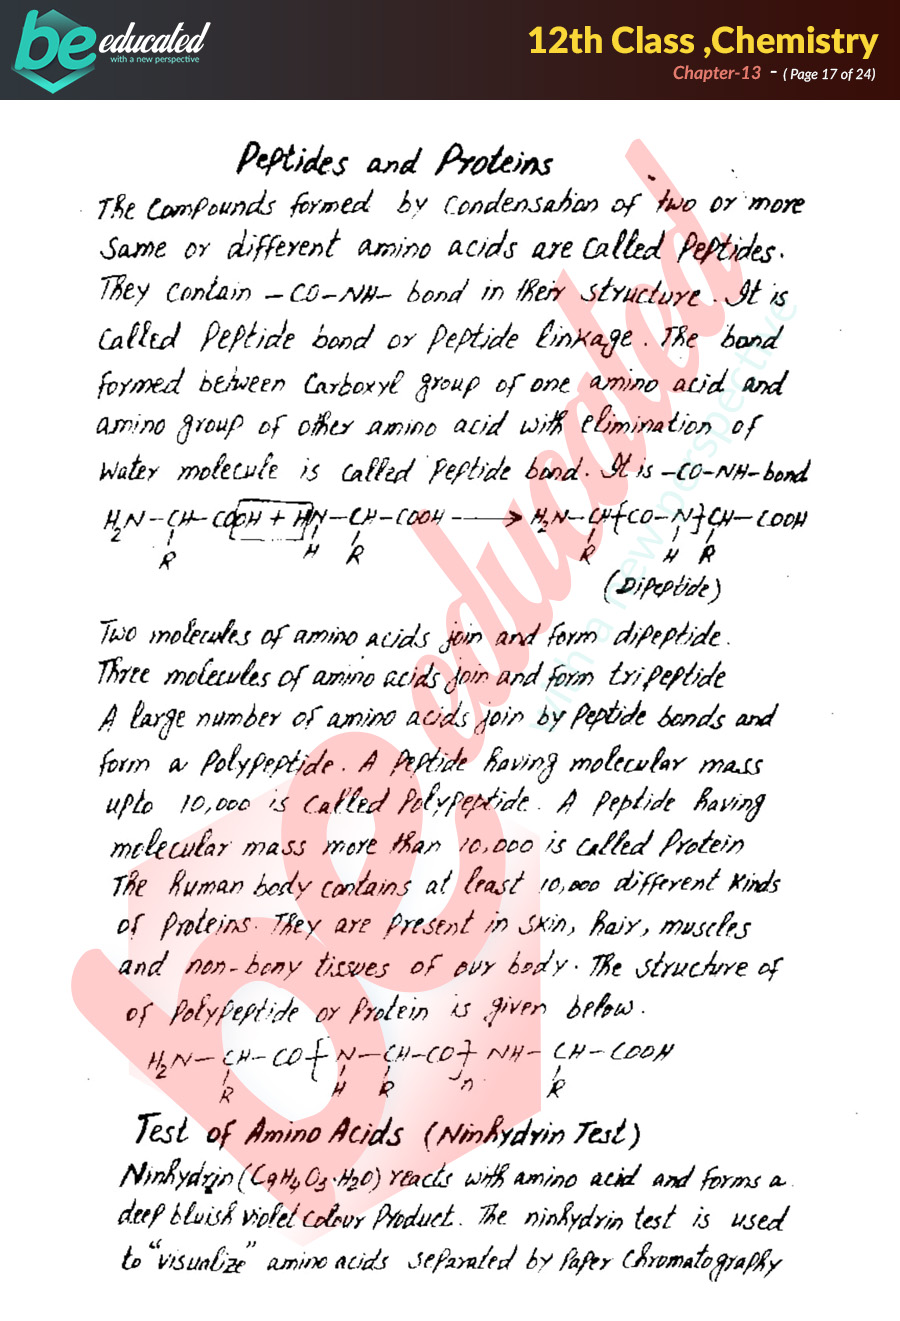 be educated
with a new perspective
12th Class ,Chemistry
Chapter-13 - ( Page 17 of 24)
Peptides and Proteins
The Compounds formed by Condensation of two or more
Same or different amino acids are Called Peptides.
They Contain -CO-NH- bond in their structure. It is
Called Peptide bond or Peptide linkage. The bond
formed between Carboxyl group of one amino acid and
amino group of other amino acid with elimination of
Water molecule is Called Peptide bond. It is -CO-NH-bond
H2N-CH-COOH + HN-CH-COOH → H2N-CH{CO-N}CH-COOH
R H R R H R
(Dipeptide)
Two molecules of amino acids join and form dipeptide.
Three molecules of amino acids join and form tripeptide
A large number of amino acids join by Peptide bonds and
form a Polypeptide. A Peptide having molecular mass
upto 10,000 is Called Polypeptide. A Peptide having
molecular mass more than 10,000 is Called Protein
The human body contains at least 10,000 different Kinds
of Proteins. They are Present in skin, hair, muscles
and non-bony tissues of our body. The structure of
of Polypeptide or Protein is given below.
H2N-CH-CO{N-CH-CO}n NH-CH-COOH
R H R R
Test of Amino Acids (Ninhydrin Test)
Ninhydrin (C9H4O3.H2O) reacts with amino acid and forms a
deep bluish violet Colour Product. The ninhydrin test is used
to "visualize" amino acids separated by Paper Chromatography
be educated
with a new perspective